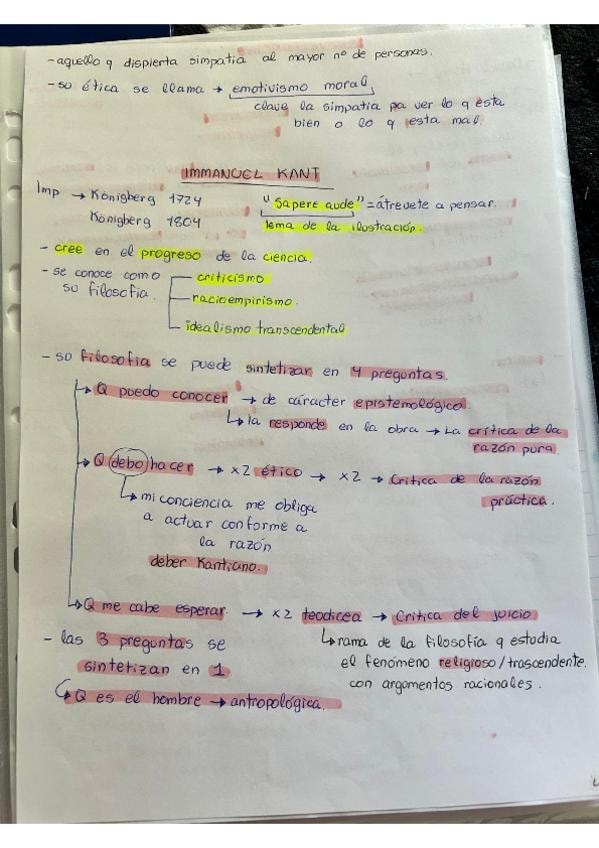 - aquello q dispierta simpatia al mayor nº de personas.
- so ética se llama → emotivismo moral
clave la simpatia pa ver lo q esta
bien o lo q esta mal.
IMMANUEL KANT
Imp → Königberg 1724
Königberg 1804
"Sapere aude" = átrevete a pensar.
lema de la ilostración.
- cree en el progreso de la ciencia.
- se conoce como
so filosofia.
criticismo
racioempirismo.
idealismo transcendental
- so filosofia se puede sintetizar en 4 preguntas.
→ Q puedo conocer → de cáracter epistemológico.
↳ la responde en la obra → La crítica de la
razón pura.
→ Q debo hacer → x2 ético → x2 → Critica de la razón
práctica.
↳ mi conciencia me obliga
a actuar conforme a
la razón
deber Kantiano.
↳ Q me cabe esperar. → x2 teodicea → Critica del juicio
↳ rama de la filosofía q estudia
el fenómeno religioso/trascendente.
con argomentos racionales.
- las 3 preguntas se
sintetizan en 1
↳ Q es el hombre → antropológica.